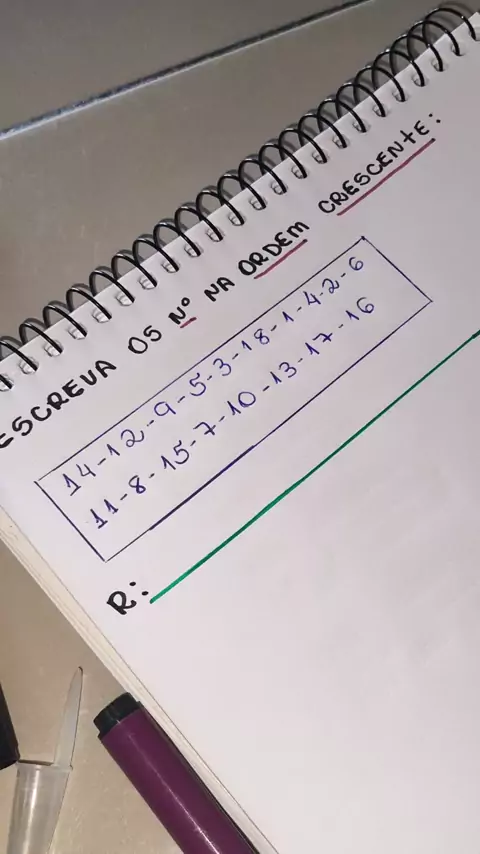 ESCREVA OS Nº NA ORDEM CRESCENTE:
14-12-9-5-3-18-1-4-2-6
11-8-15-7-10-13-17-16
R: